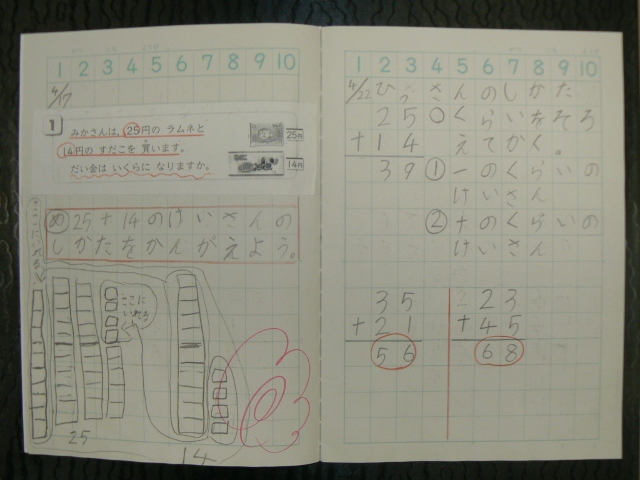 1 2 3 4 5 6 7 8 9 10
4/17
1
みかさんは、25円の ラムネと
14円の すだこを 買います。
だい金は いくらに なりますか。
25円
14円
め 25+14のけいさんの
しかたをかんがえよう。
ここに
いれる
25
14
1 2 3 4 5 6 7 8 9 10
4/22 ひっさんのしかた
25 ○くらいをそろ
+14 えてかく。
39 ①一のくらいの
けいさん
②十のくらいの
けいさん
35 23
+21 +45
56 68